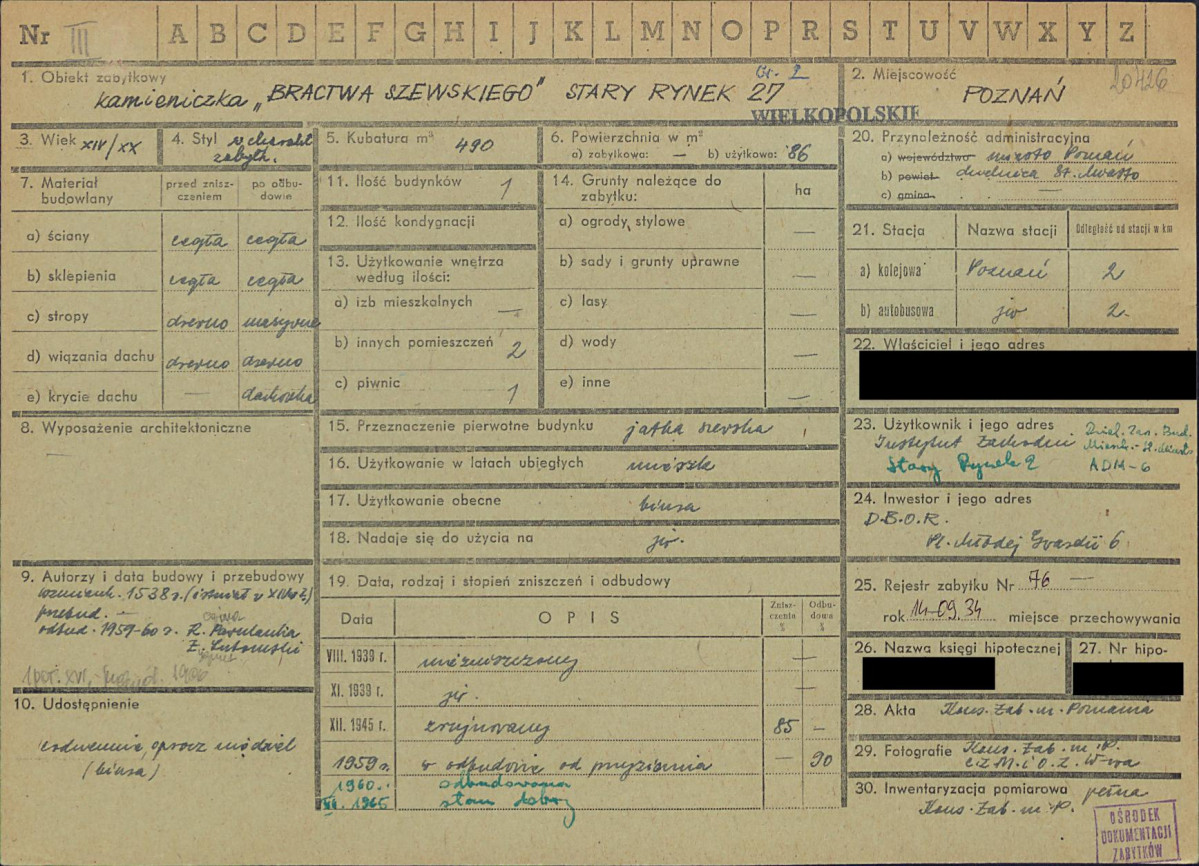 Nr III A B C D E F G H I J K L M N O P R S T U V W X Y Z
1. Obiekt zabytkowy
kamieniczka „BRACTWA SZEWSKIEGO" STARY RYNEK 27
WIELKOPOLSKIE
2. Miejscowość 20426
POZNAŃ
3. Wiek XIV/XX
4. Styl
zabytk.
5. Kubatura m³ 490
6. Powierzchnia w m²
a) zabytkowa: — b) użytkowa: 86
7. Materiał budowlany
przed zniszczeniem
po odbudowie
a) ściany cegła cegła
b) sklepienia cegła cegła
c) stropy drewno masywne
d) wiązania dachu drewno drewno
e) krycie dachu — dachówka
8. Wyposażenie architektoniczne
—
9. Autorzy i data budowy i przebudowy
wzmiank. 1538 r. (istniał w XIV w.)
przebud. —
odbud. 1959-60 r. R. Pawulanka
Z. Lutomski
10. Udostępnienie
codziennie, oprócz niedziel
(biura)
11. Ilość budynków 1
12. Ilość kondygnacji
13. Użytkowanie wnętrza
według ilości:
a) izb mieszkalnych —
b) innych pomieszczeń 2
c) piwnic 1
14. Grunty należące do
zabytku: ha
a) ogrody stylowe —
b) sady i grunty uprawne —
c) lasy —
d) wody —
e) inne —
15. Przeznaczenie pierwotne budynku jatka szewska
16. Użytkowanie w latach ubiegłych
17. Użytkowanie obecne biura
18. Nadaje się do użycia na jw.
19. Data, rodzaj i stopień zniszczeń i odbudowy
Data OPIS Zniszczenia % Odbudowa %
VIII. 1939 r. niezniszczony —
XI. 1939 r. jw. —
XII. 1945 r. zrujnowany 85 —
1959 r. w odbudowie od przyziemia — 90
1960. odbudowana
XII. 1965 stan dobry
20. Przynależność administracyjna
a) województwo miasto Poznań
b) powiat dzielnica St. Miasto
c) gmina —
21. Stacja Nazwa stacji Odległość od stacji w km
a) kolejowa Poznań 2
b) autobusowa jw 2
22. Właściciel i jego adres
23. Użytkownik i jego adres
Instytut Zachodni
Stary Rynek 2
ADM-6
24. Inwestor i jego adres
D.B.O.R.
Pl. Młodej Gwardii 6
25. Rejestr zabytku Nr 76 —
rok 14.09.34 miejsce przechowywania
26. Nazwa księgi hipotecznej
27. Nr hipo-
28. Akta Kons. Zab. m. Poznania
29. Fotografie Kons. Zab. m. P.
i Z.M.i O.Z. W-wa
30. Inwentaryzacja pomiarowa pełna
Kons. Zab. m. P.
OŚRODEK
DOKUMENTACJI
ZABYTKÓW